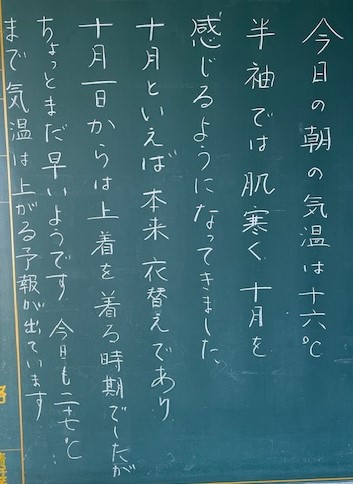 今日の朝の気温は十六℃
半袖では肌寒く 十月を
感じるようになってきました、
十月といえば本来衣替えであり
十月一日からは上着を着る時期でしたが
ちょっとまだ早いようです 今日も二十七℃
まで気温は上がる予報が出ています